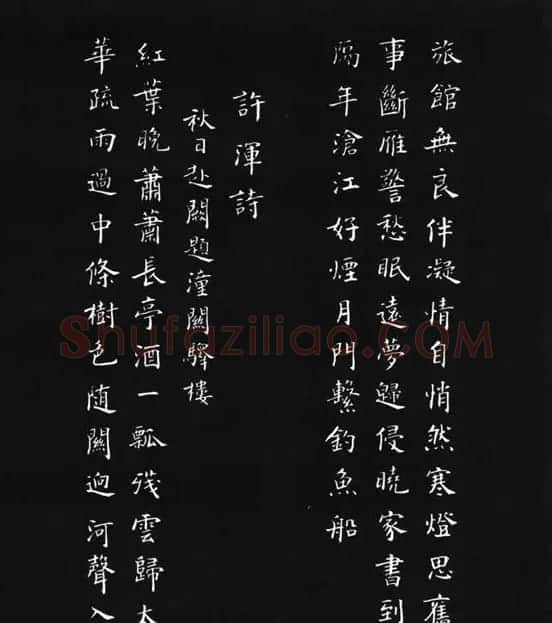 旅館無良伴凝情自悄然寒燈思舊
事斷雁警愁眠遠夢歸侵曉家書到
隔年滄江好煙月門繫釣魚船
許渾詩
秋日赴闕題潼關驛樓
紅葉晚蕭蕭長亭酒一瓢殘雲歸太
華疏雨過中條樹色随關迥河聲入
Shufaziliao.COM